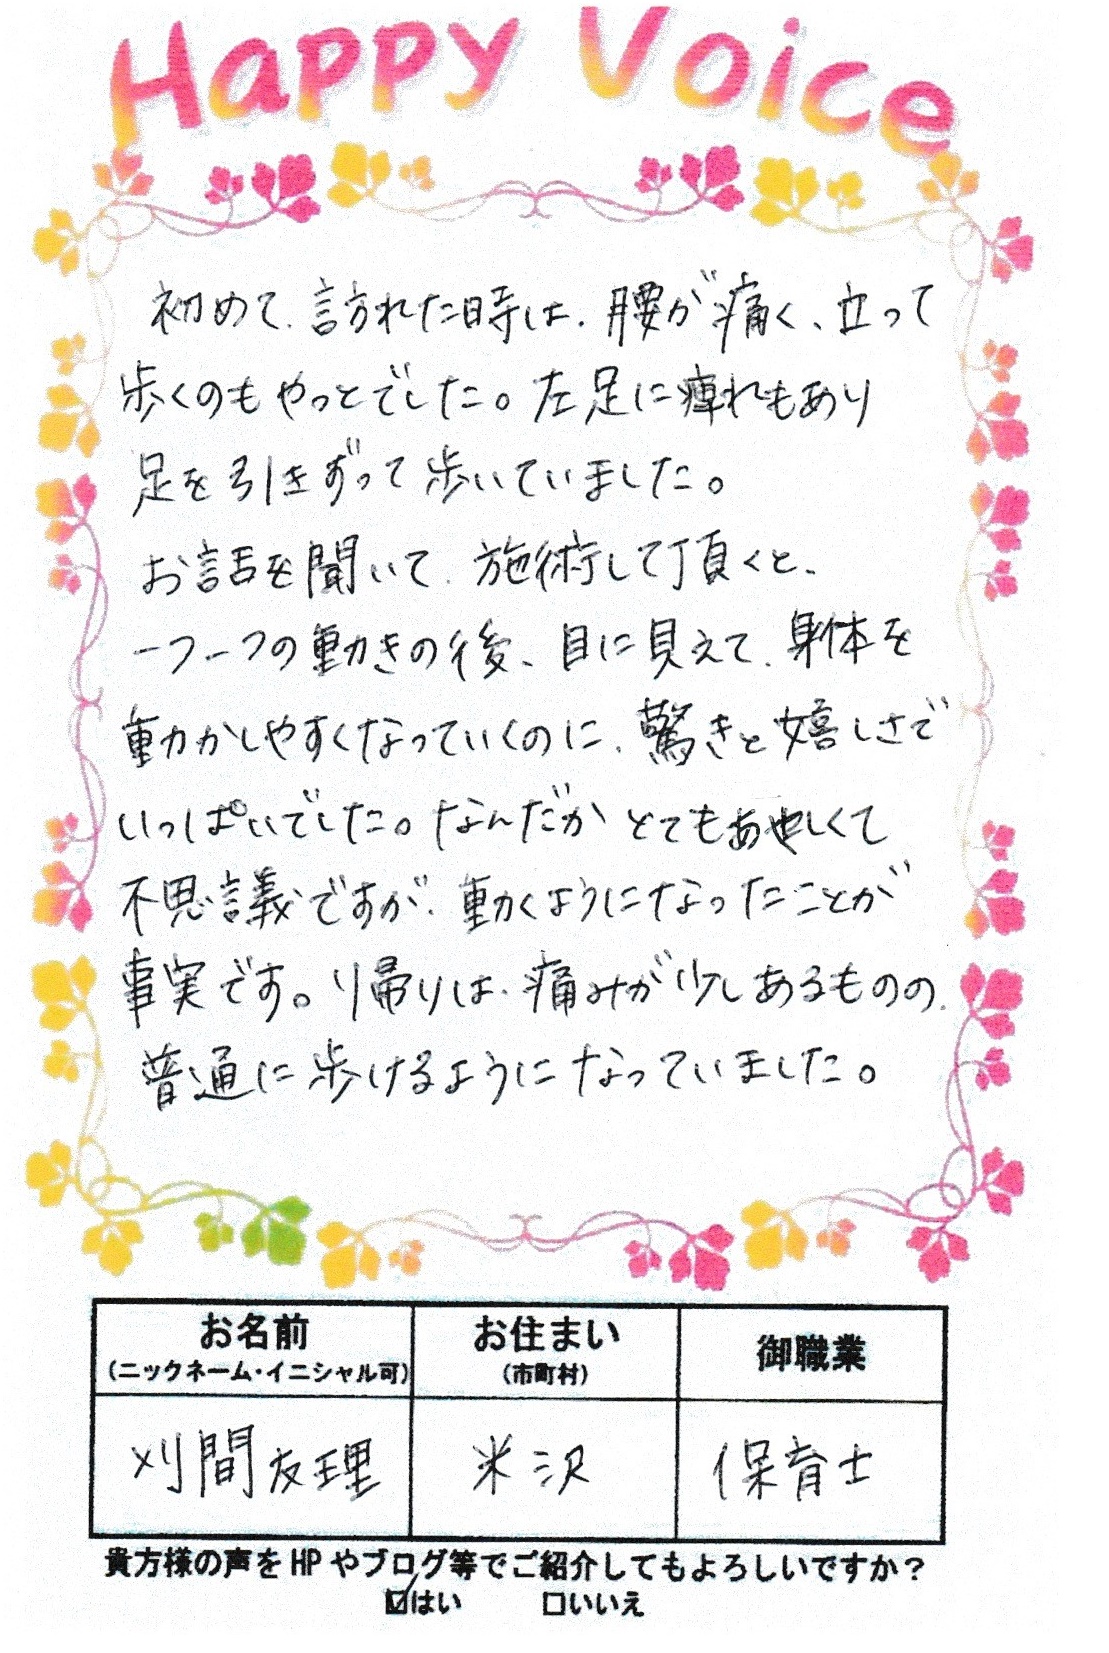 Happy Voice
初めて、訪れた時は、腰が痛く、立って
歩くのもやっとでした。左足に痺れもあり
足を引きずって歩いていました。
お話を聞いて、施術して頂くと、
一つ一つの動きの後、目に見えて、身体を
動かしやすくなっていくのに、驚きと嬉しさで
いっぱいでした。なんだかとてもあやしくて
不思議ですが、動くようになったことが
事実です。帰りは、痛みが少しあるものの、
普通に歩けるようになっていました。
お名前 お住まい 御職業
(ニックネーム・イニシャル可) (市町村)
刈間友理 米沢 保育士
貴方様の声をHPやブログ等でご紹介してもよろしいですか？
☑はい □いいえ